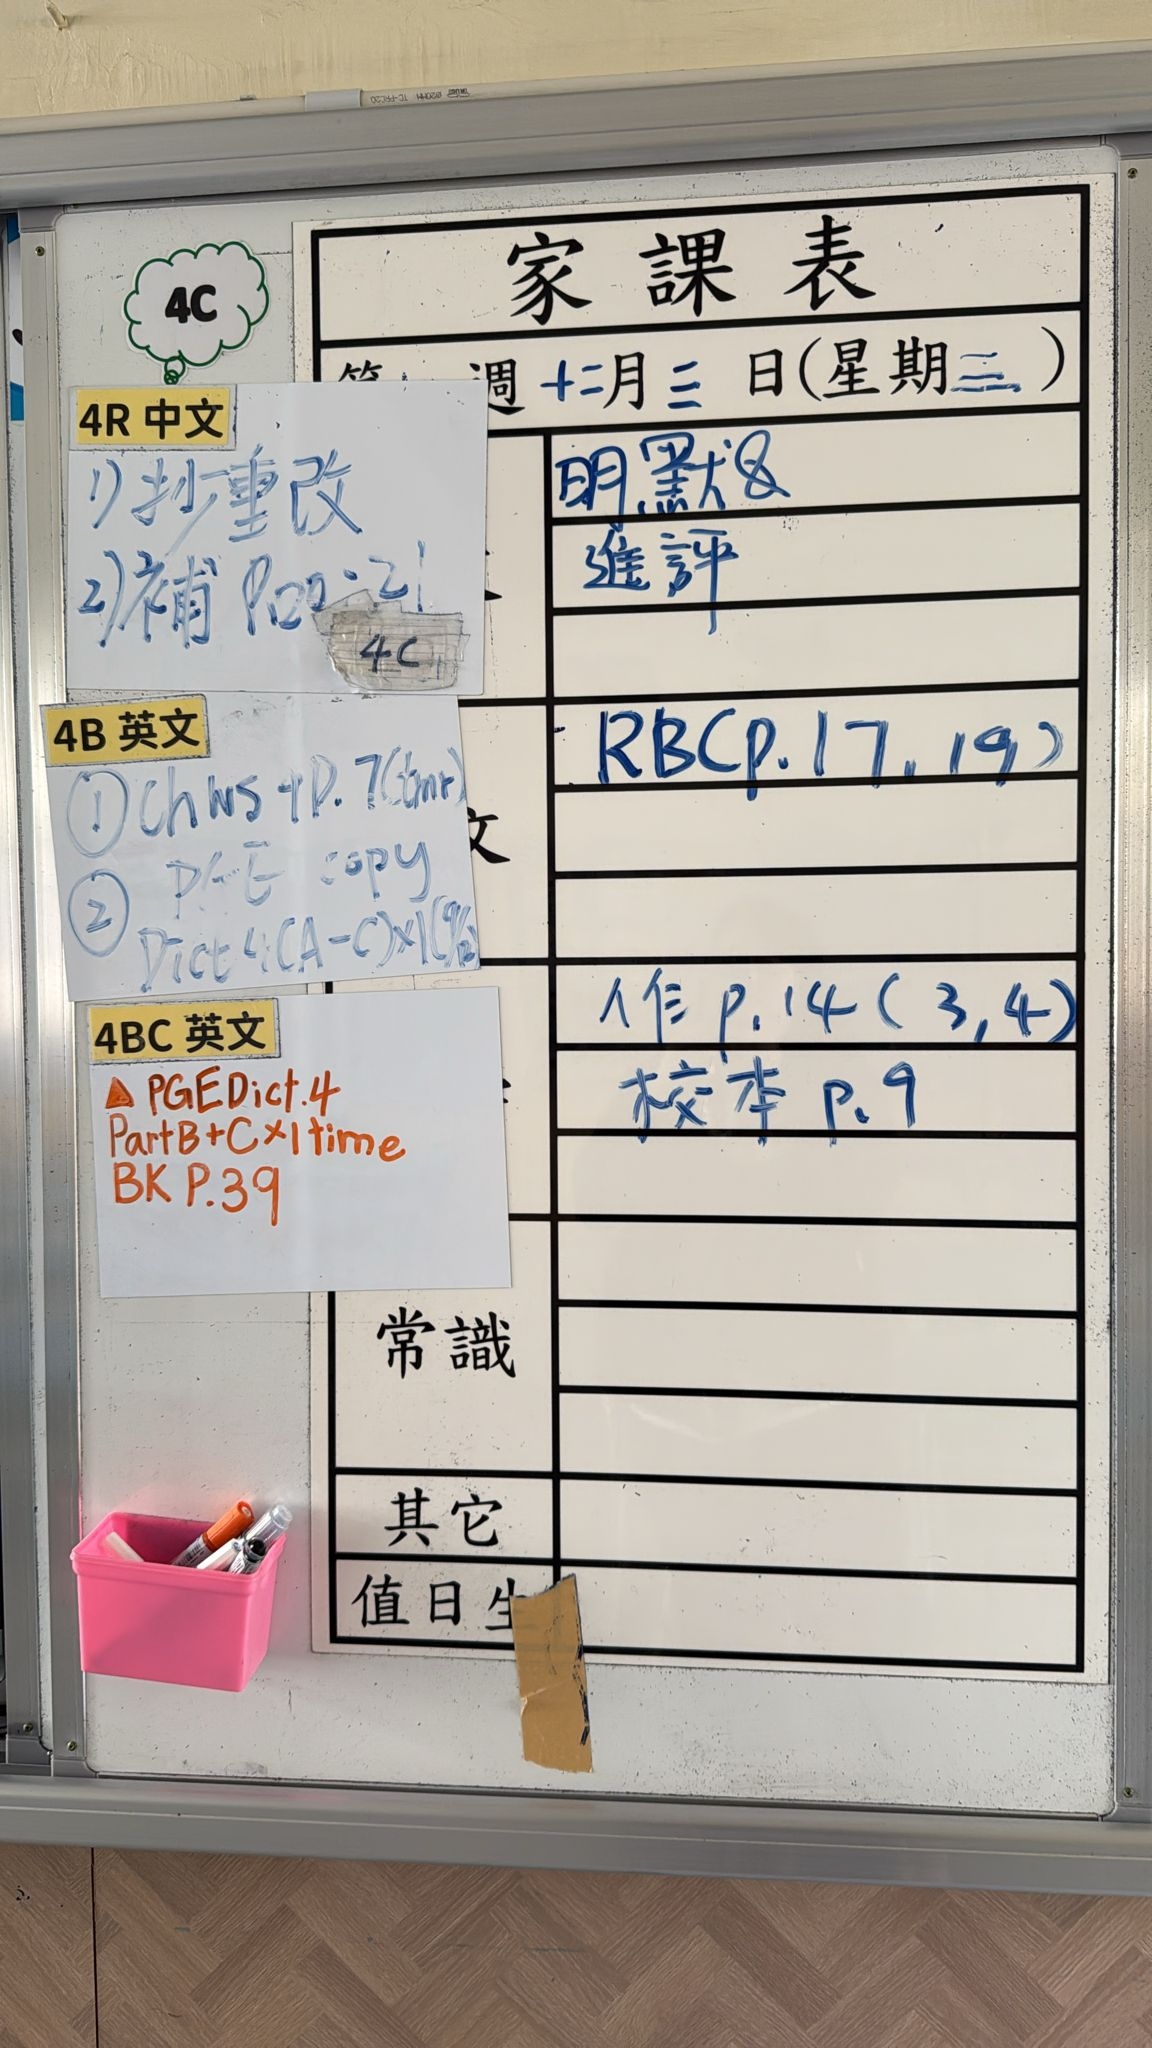 家課表
週十二月三日(星期三)
4C
4R 中文
1)抄重改
2)補 P20-21
4C
明默8
進評
4B 英文
① Ch WS + P. 7(tmr)
② PGE copy
Dict 4(A-C)x1(9/12)
文
RB(p.17, 19)
4BC 英文
PGEDict.4
PartB+C×1time
BK P.39
作 p.14 (3,4)
校本 p.9
常識
其它
值日生